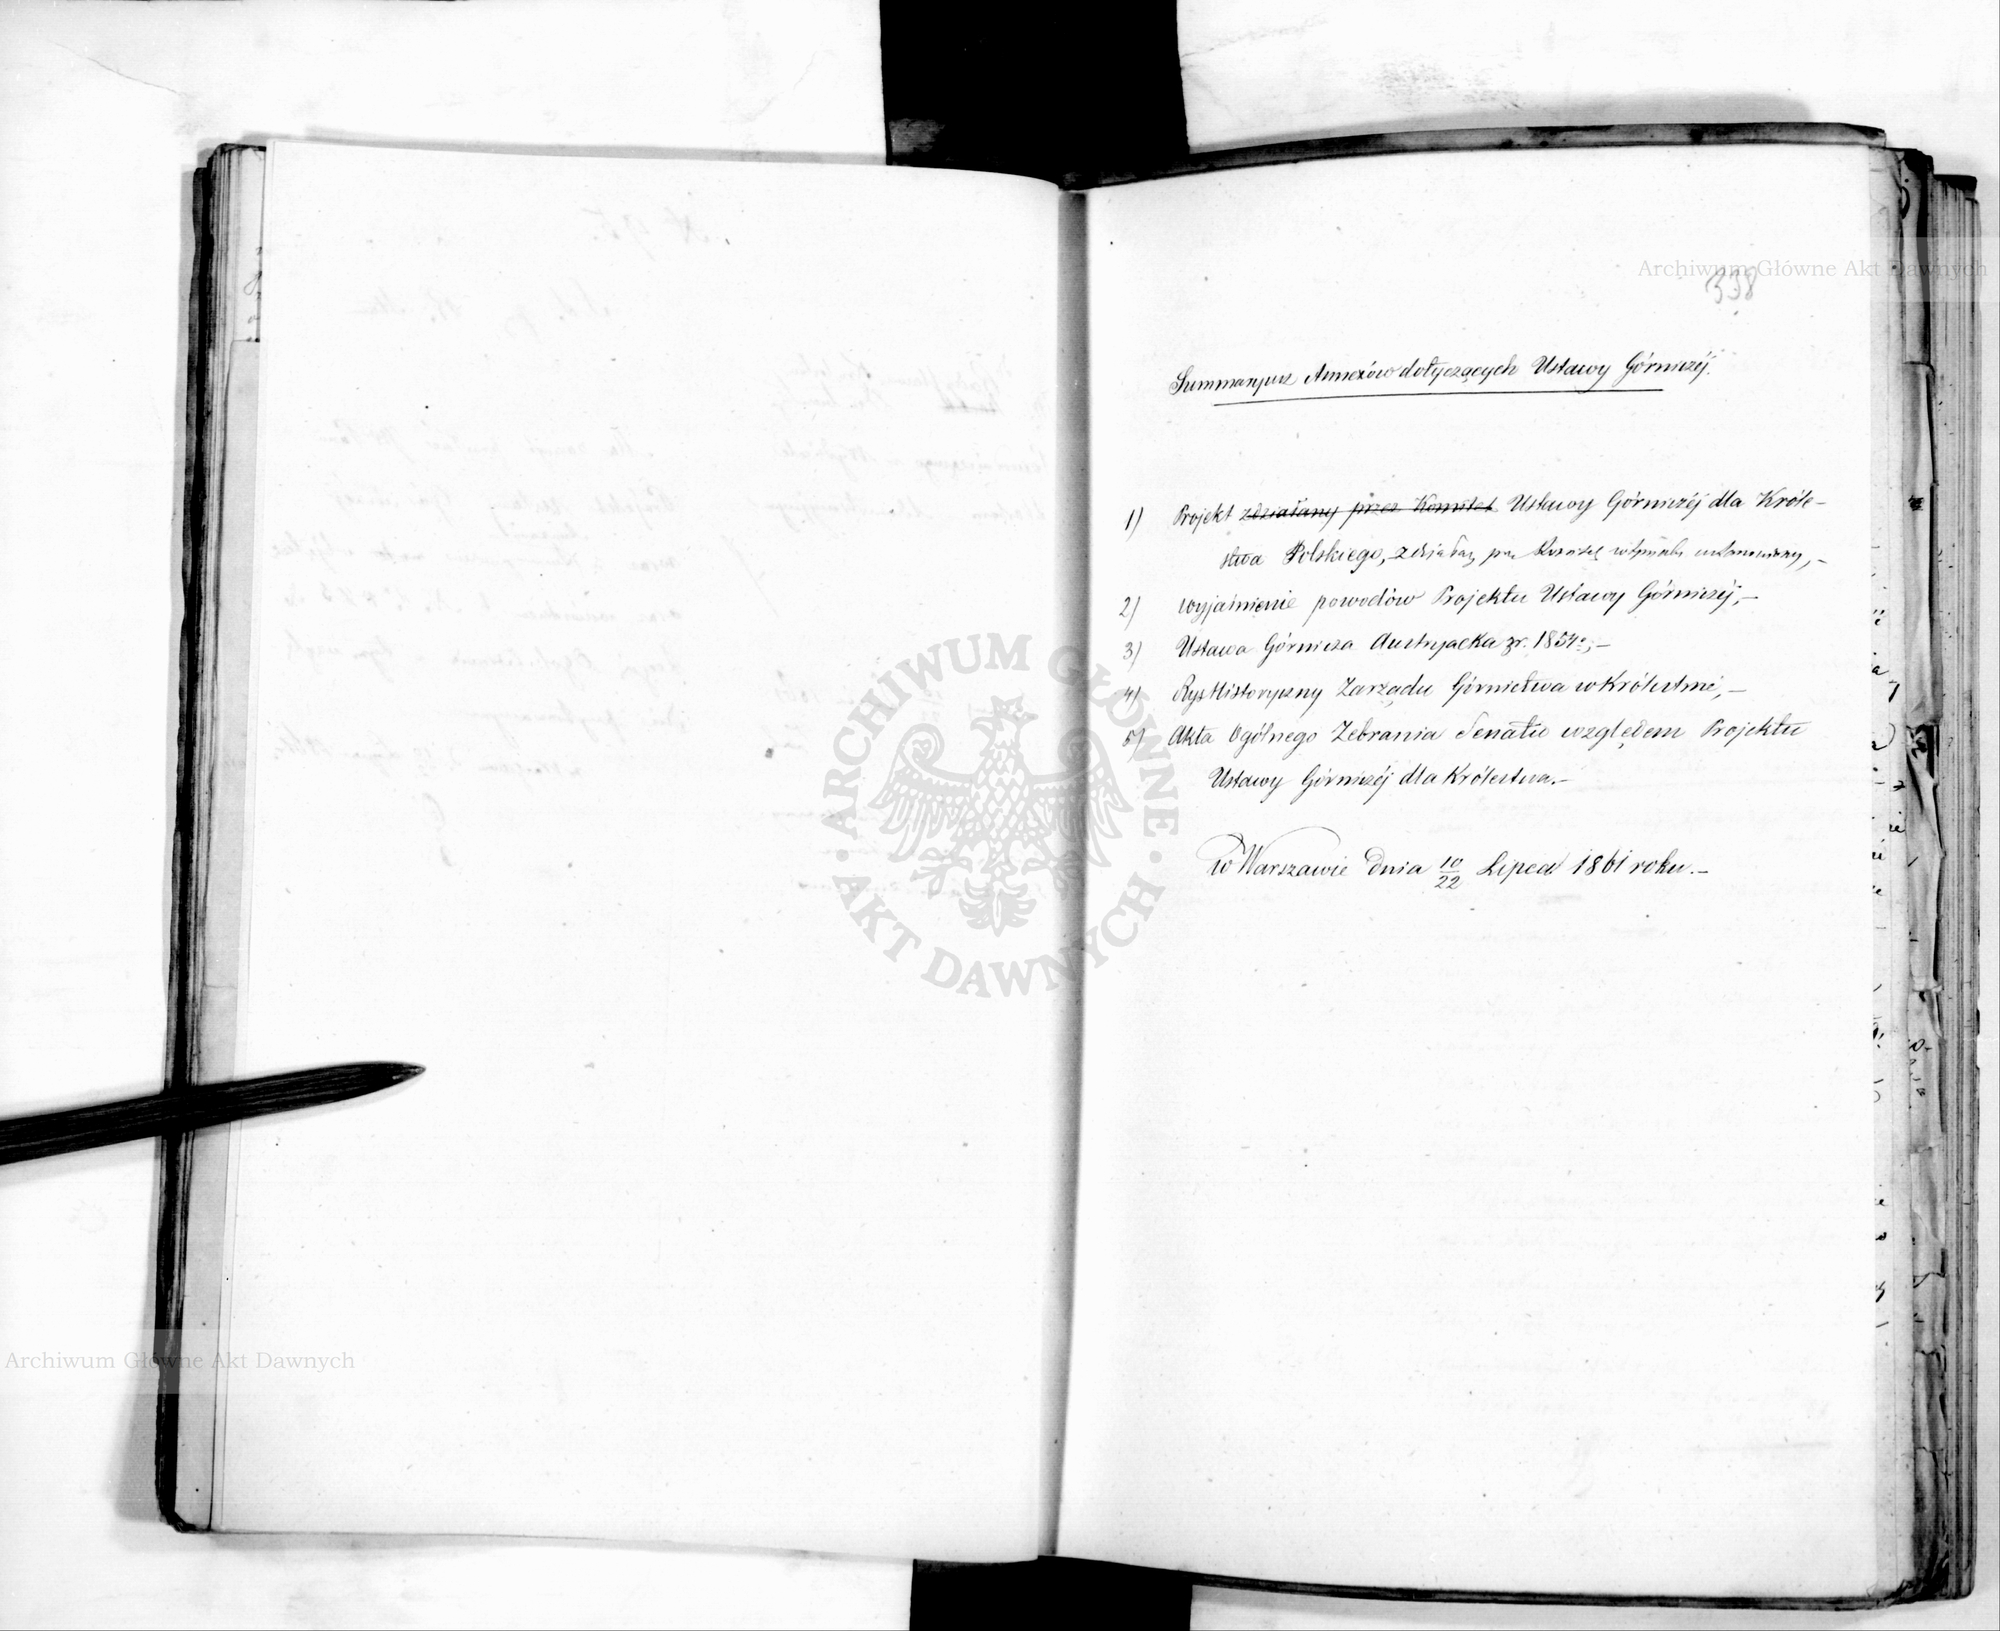 Archiwum Główne Akt Dawnych
338
Summaryusz Annexów dotyczących Ustawy Górniczéj.
1) Projekt zdziałany przez Komitet Ustawy Górniczéj dla Króle-
stwa Polskiego, zdziałany przez Komitet ustanowiony, -
2) wyjaśnienie powodów Projektu Ustawy Górniczéj, -
3) Ustawa Górnicza Austryacka z r. 1854; -
4) Rys Historyczny Zarządu Górnictwa w Królestwie, -
5) Akta Ogólnego Zebrania Senatu względem Projektu
Ustawy Górniczéj dla Królestwa. -
w Warszawie dnia 10/22 Lipca 1861 roku. -
ARCHIWUM GŁÓWNE · AKT DAWNYCH ·
Archiwum Główne Akt Dawnych